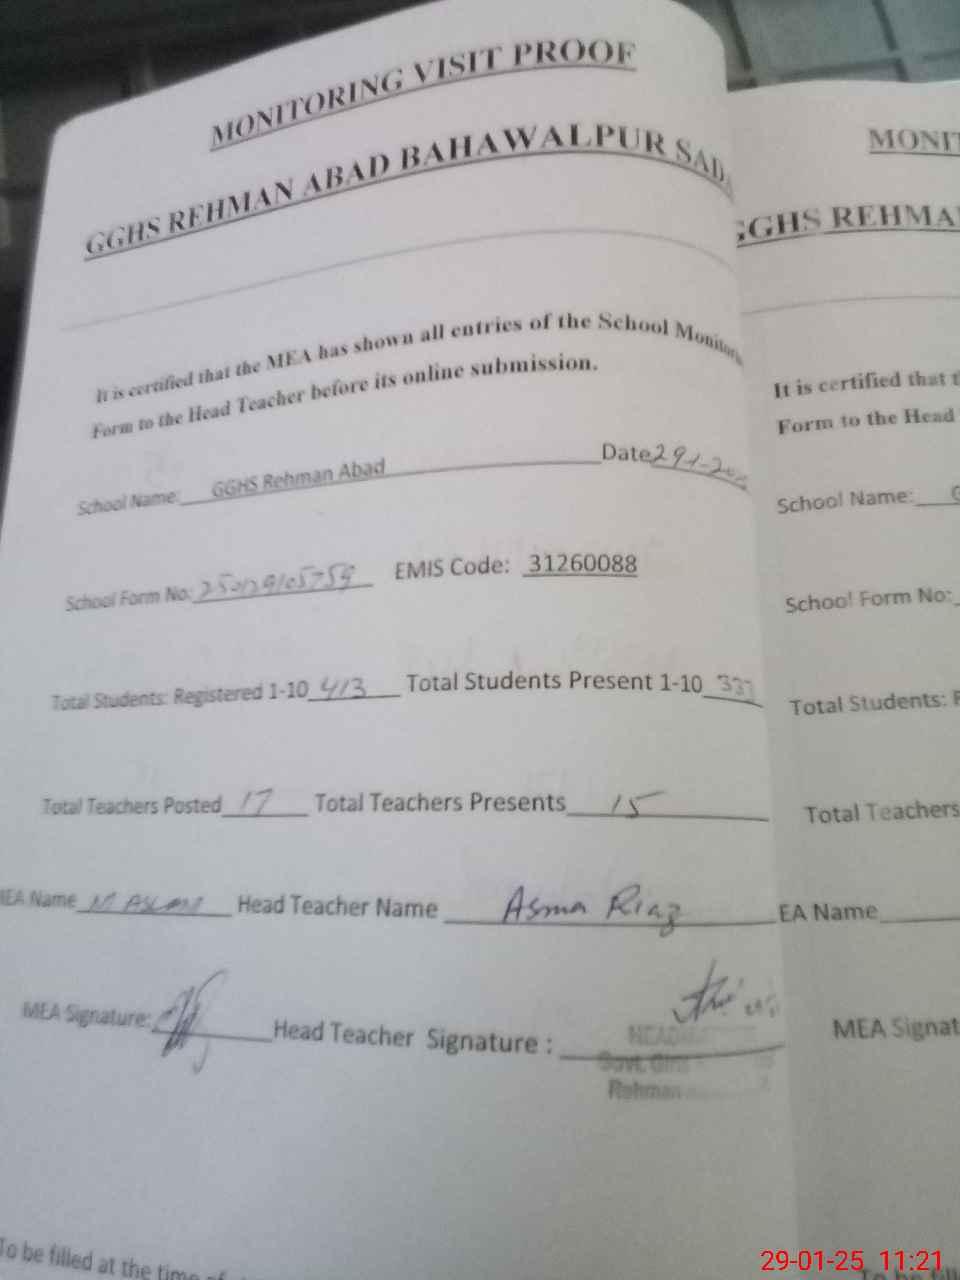 MONITORING VISIT PROOF
GGHS REHMAN ABAD BAHAWALPUR SADA
It is certified that the MEA has shown all entries of the School Monitorin
Form to the Head Teacher before its online submission.
School Name: GGHS Rehman Abad Date
School Form No: 250129105759 EMIS Code: 31260088
Total Students: Registered 1-10 413 Total Students Present 1-10
Total Teachers Posted 17 Total Teachers Presents 15
MEA Name M ASLAM Head Teacher Name Asma Riaz
MEA Signature: Head Teacher Signature :
Govt. Girls
Rehman
To be filled at the time of
MONIT
GGHS REHMA
It is certified that t
Form to the Head
School Name: G
School Form No:
Total Students: R
Total Teachers
EA Name
MEA Signat
29-01-25 11:21